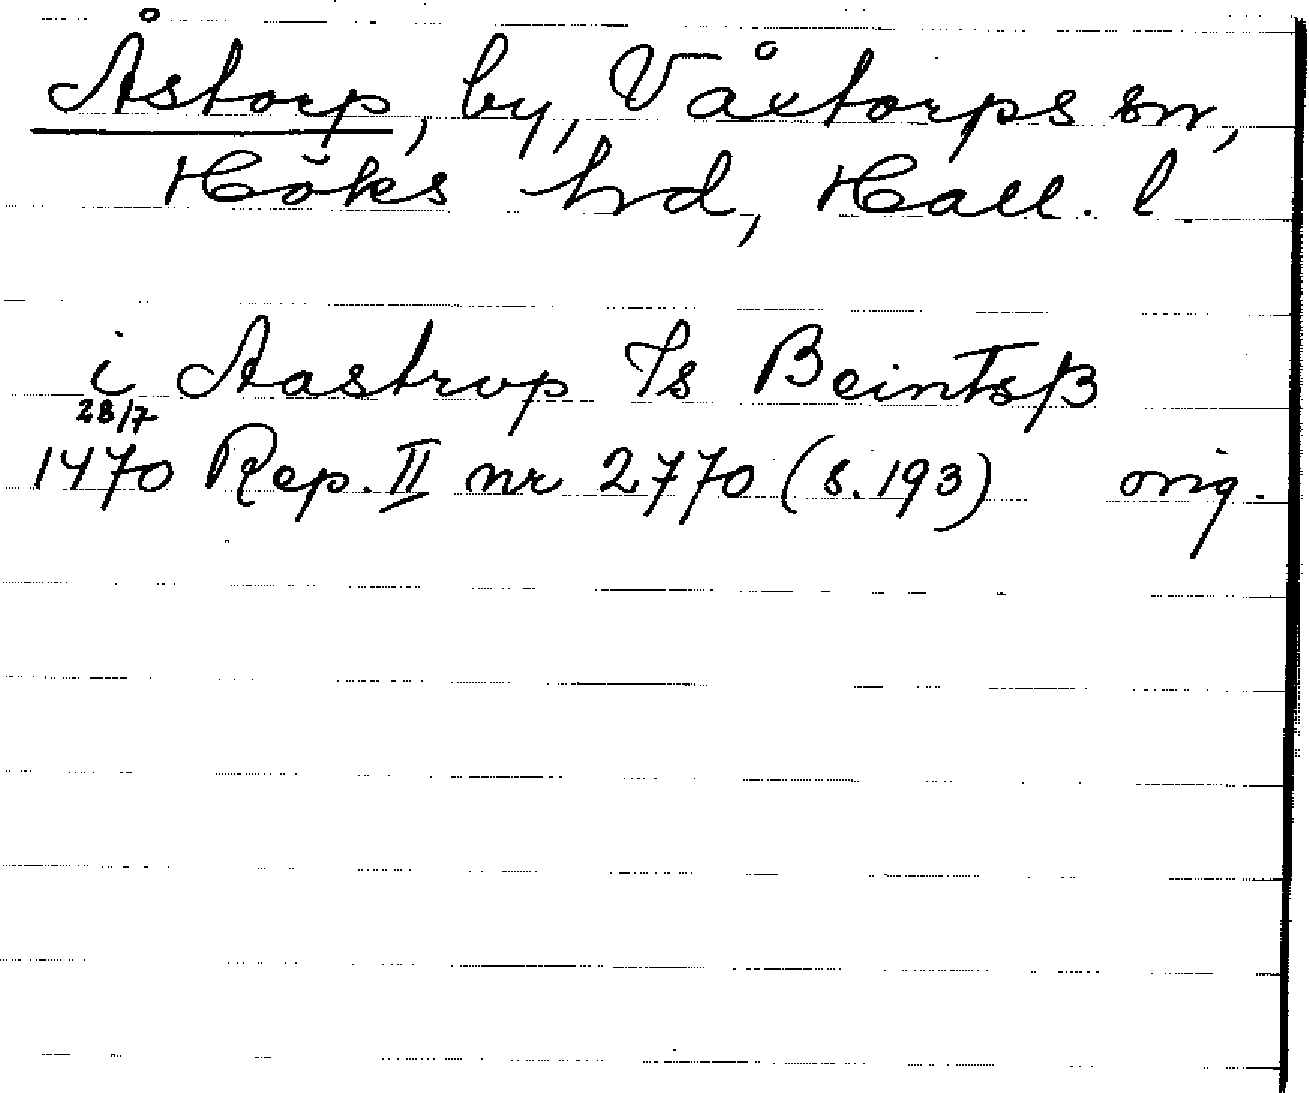 Åstorp, by, Våxtorps sn,
Höks hd, Hall. l.
i Aastrvp Is Beintsß
28/7
1470 Rep. II nr 2770 (s. 193) orig.